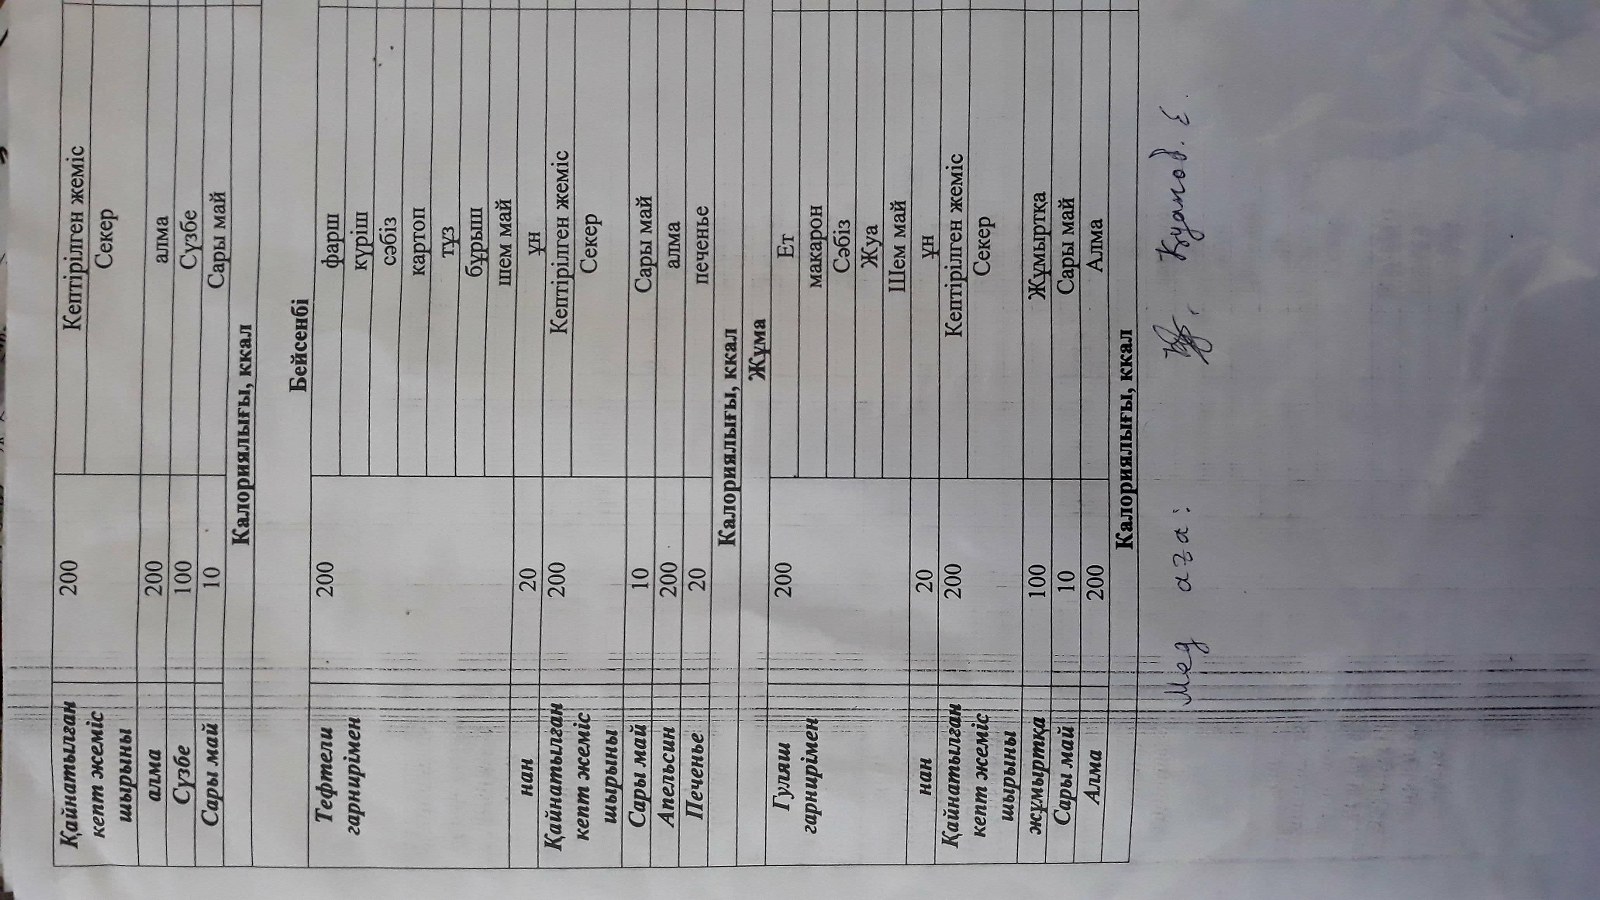 Қайнатылған 200 Кептірілген жеміс
кепт жеміс Секер
шырыны
алма 200 алма
Сүзбе 100 Сүзбе
Сары май 10 Сары май
Калориялығы, ккал
Бейсенбі
Тефтели 200 фарш
гарнирімен күріш
сәбіз
картоп
тұз
бұрыш
шем май
нан 20 ұн
Қайнатылған 200 Кептірілген жеміс
кепт жеміс Секер
шырыны
Сары май 10 Сары май
Апельсин 200 алма
Печенье 20 печенье
Калориялығы, ккал
Жұма
Гуляш 200 Ет
гарнирімен макарон
Сәбіз
Жуа
Шем май
нан 20 ұн
Қайнатылған 200 Кептірілген жеміс
кепт жеміс Секер
шырыны
жұмыртқа 100 Жұмыртқа
Сары май 10 Сары май
Алма 200 Алма
Калориялығы, ккал
Мед аға: